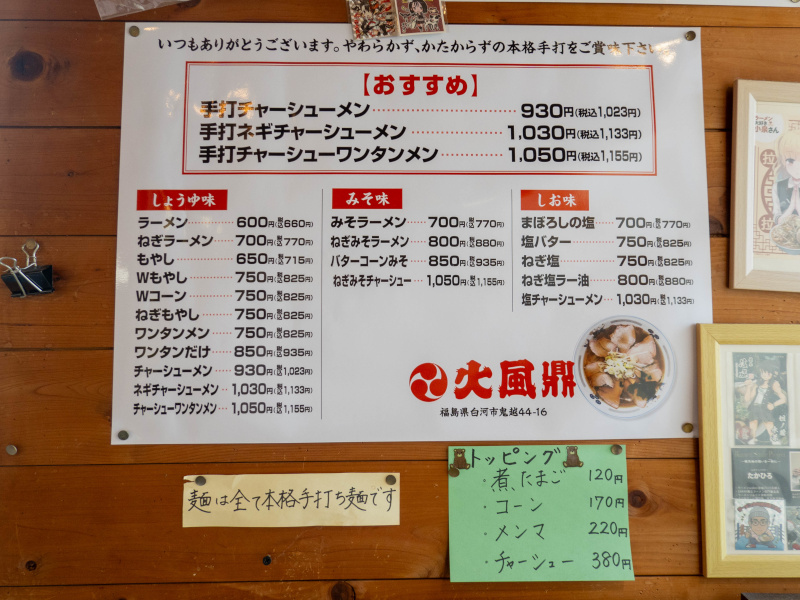 いつもありがとうございます。やわらかず、かたからずの本格手打をご賞味下さい。
【おすすめ】
手打チャーシューメン 930円(税込1,023円)
手打ネギチャーシューメン 1,030円(税込1,133円)
手打チャーシューワンタンメン 1,050円(税込1,155円)
しょうゆ味
ラーメン 600円(税込660円)
ねぎラーメン 700円(税込770円)
もやし 650円(税込715円)
Wもやし 750円(税込825円)
Wコーン 750円(税込825円)
ねぎもやし 750円(税込825円)
ワンタンメン 750円(税込825円)
ワンタンだけ 850円(税込935円)
チャーシューメン 930円(税込1,023円)
ネギチャーシューメン 1,030円(税込1,133円)
チャーシューワンタンメン 1,050円(税込1,155円)
みそ味
みそラーメン 700円(税込770円)
ねぎみそラーメン 800円(税込880円)
バターコーンみそ 850円(税込935円)
ねぎみそチャーシュー 1,050円(税込1,155円)
しお味
まぼろしの塩 700円(税込770円)
塩バター 750円(税込825円)
ねぎ塩 750円(税込825円)
ねぎ塩ラー油 800円(税込880円)
塩チャーシューメン 1,030円(税込1,133円)
火風鼎
福島県白河市鬼越44-16
麺は全て本格手打ち麺です
トッピング
・煮たまご 120円
・コーン 170円
・メンマ 220円
・チャーシュー 380円
ラーメン
小泉さん
たかひろ